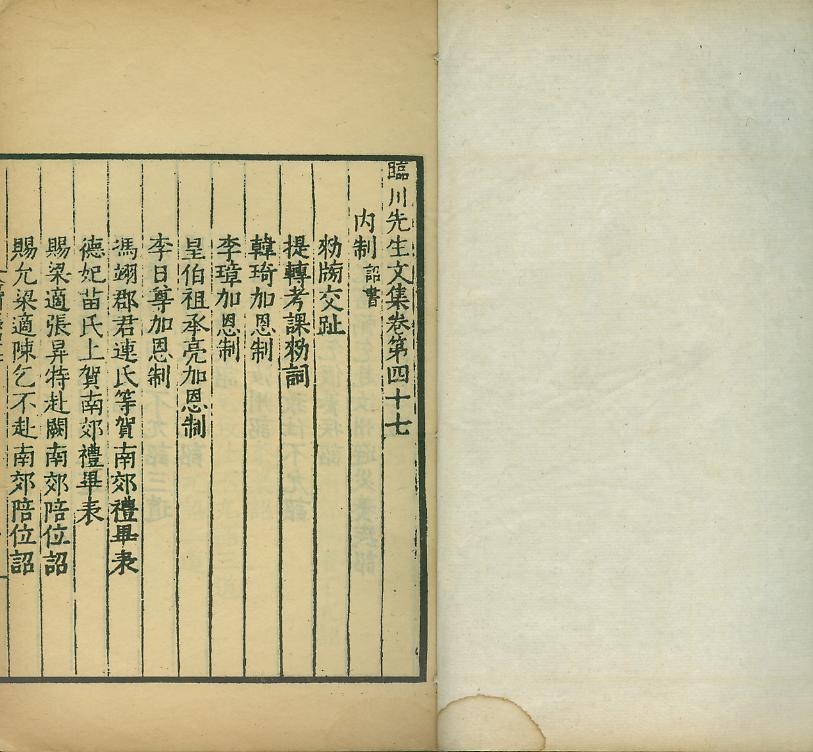 臨川先生文集卷第四十七
内制 詔書
勑牓交趾
提轉考課勑詞
韓琦加恩制
李璋加恩制
皇伯祖承亮加恩制
李日尊加恩制
馮翊郡君連氏等賀南郊禮畢表
德妃苗氏上賀南郊禮畢表
賜梁適張昇特赴闕南郊陪位詔
賜允梁適陳乞不赴南郊陪位詔